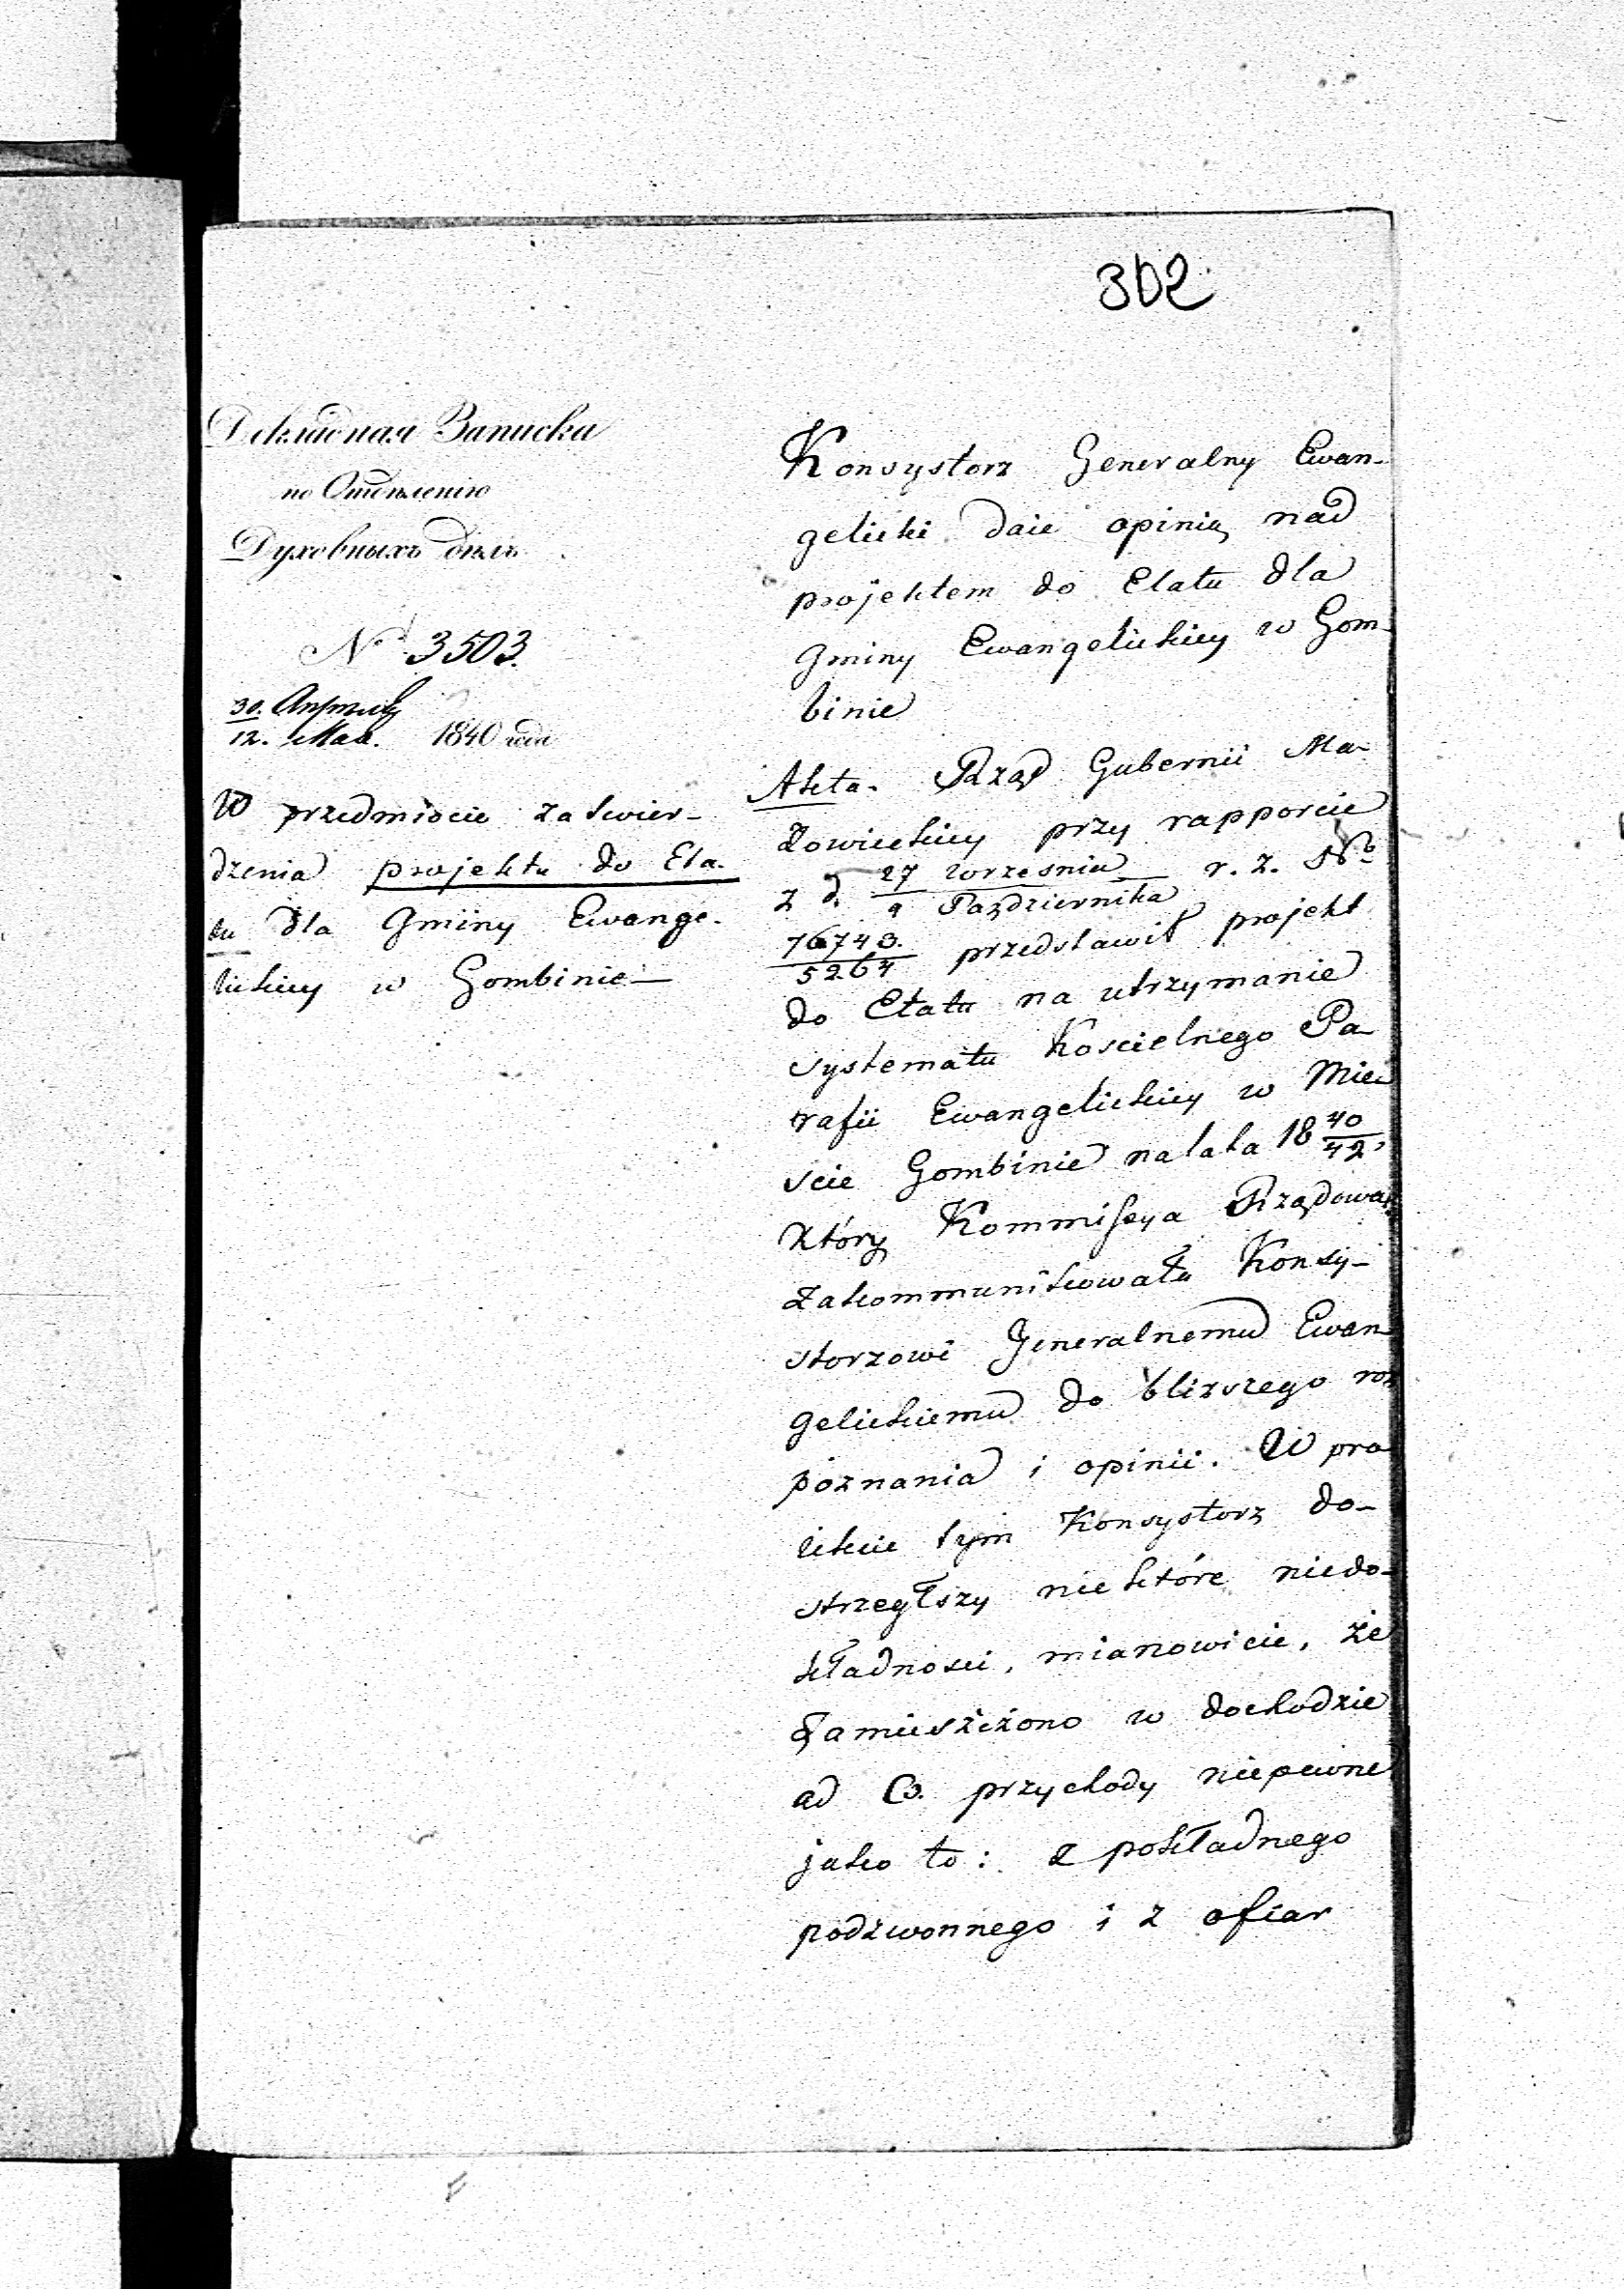 302
Докладная Записка
по Отдѣленію
Духовныхъ дѣлъ
№ 3503.
30. Апрѣля
12. Мая. 1840 года
W przedmiocie zatwier-
dzenia projektu do Eta-
tu dla Gminy Ewange-
lickiey w Gombinie —
Konsystorz Generalny Ewan-
gelicki daie opinię nad
projektem do Etatu dla
Gminy Ewangelickiey w Gom-
binie
Akta. Rząd Gubernii Ma-
zowieckiey przy rapporcie
z d. 27 Wrzesnia / 9 Pazdziernika r. z. No
76743. / 5264 przedstawił projekt
do Etatu na utrzymanie
systematu Koscielnego Pa-
rafii Ewangelickiey w Mie-
scie Gombinie na lata 18 40/42,
który Kommissya Rządowa
zakommunikowała Konsy-
storzowi Generalnemu Ewan-
gelickiemu do bliższego roz-
poznania i opinii. W pro-
iekcie tym Konsystorz do-
strzegłszy niektóre niedo-
kładnosci, mianowicie, że
zamieszczono w dochodzie
ad C. przychody niepewne
jako to: z pokładnego
podzwonnego i z ofiar